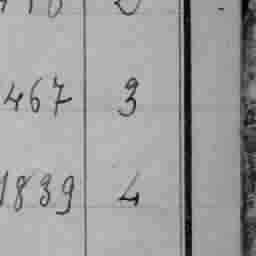 467 3
1839 4